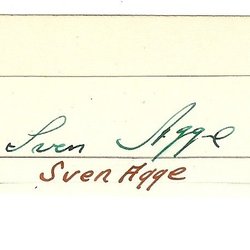 Sven Agge
Sven Agge